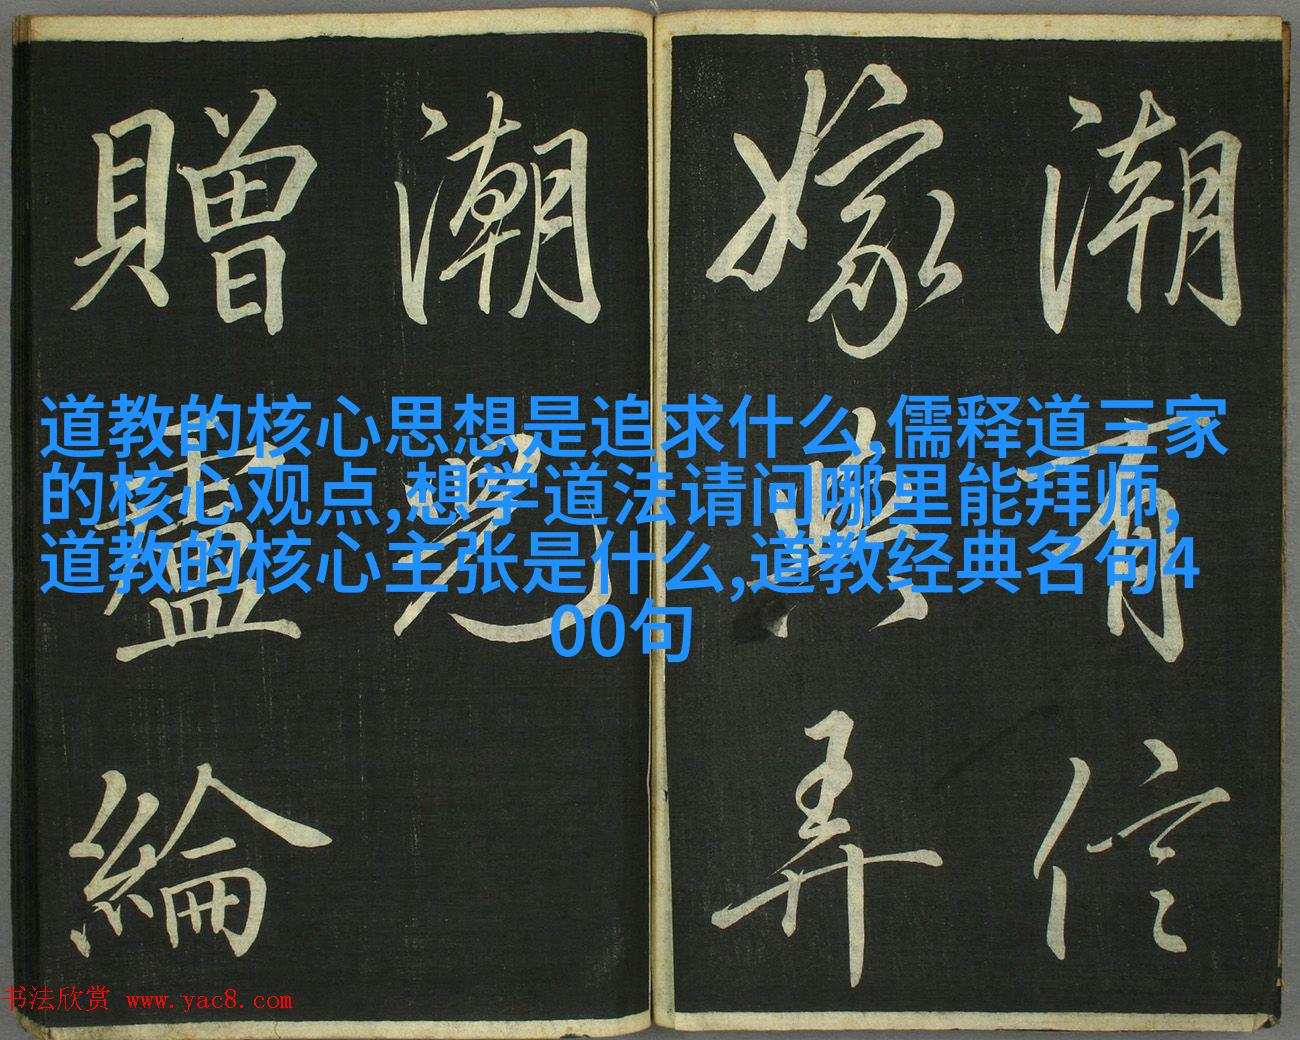 潮有信
嫁與弄
潮兒
贈盧綸
道教的核心思想是追求什么,儒释道三家
的核心观点,想学道法请问哪里能拜师,
道教的核心主张是什么,道教经典名句4
00句
书法欣赏 www.yac8.com